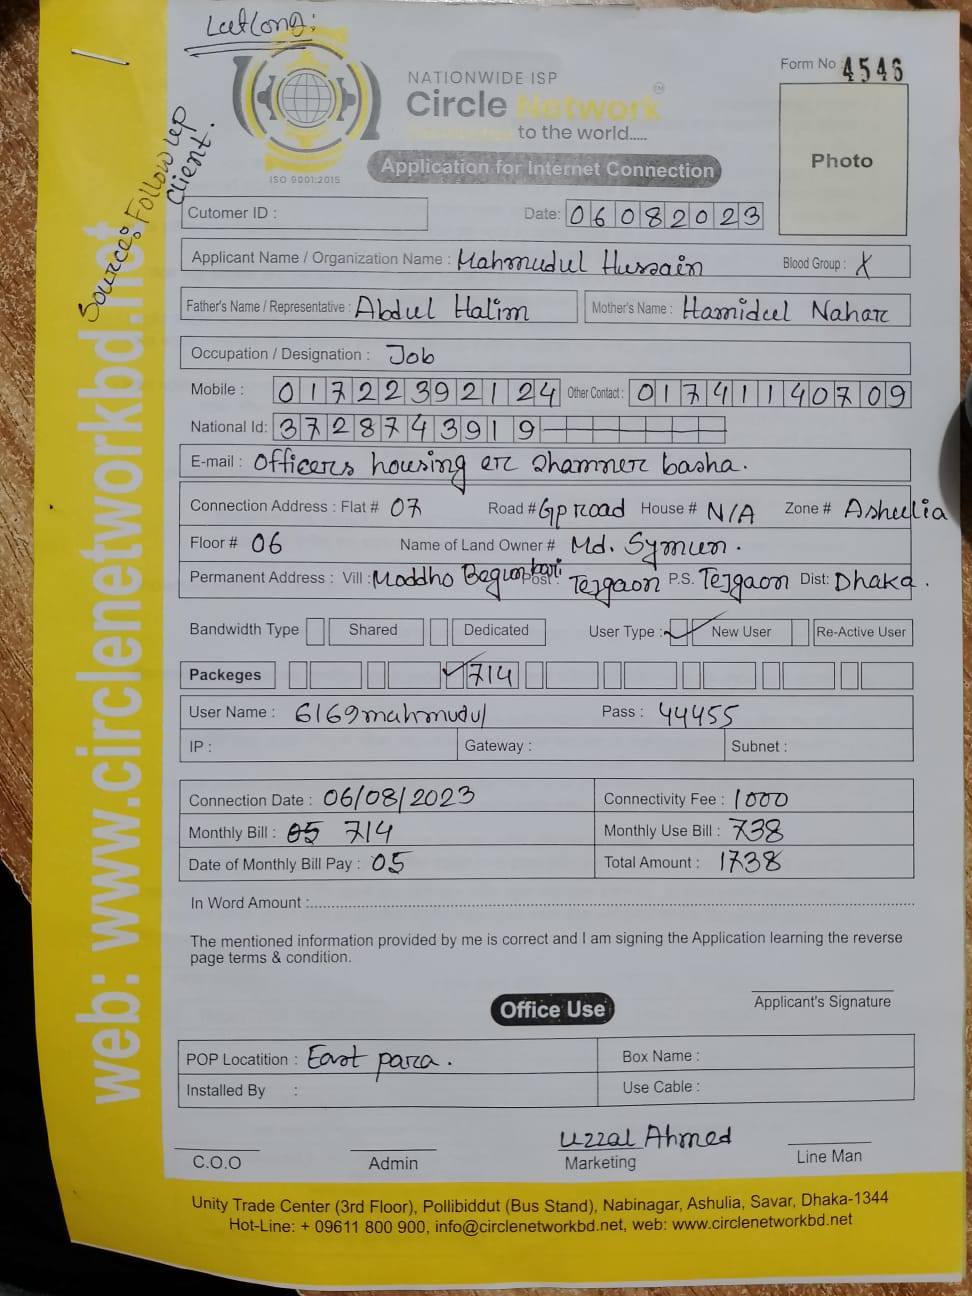 Lat Long:
Form No : 4546
NATIONWIDE ISP
Circle Network
to the world.....
ISO 9001:2015
Application for Internet Connection
Photo
Source: Follow up client.
Cutomer ID :
Date: 06082023
Applicant Name / Organization Name : Mahmudul Hussain Blood Group : X
Father's Name / Representative : Abdul Halim Mother's Name : Hamidul Nahar
Occupation / Designation : Job
Mobile : 01722392124 Other Contact : 01741140709
National Id: 3728743919
E-mail : Officers housing er shamner basha.
Connection Address : Flat # 07 Road # GP road House # N/A Zone # Ashulia
Floor # 06 Name of Land Owner # Md. Symun.
Permanent Address : Vill : Moddho Begunbari Post : Tejgaon P.S. Tejgaon Dist: Dhaka.
Bandwidth Type Shared Dedicated User Type : ✓ New User Re-Active User
Packeges ✓ 714
User Name : 6169mahmudul Pass : 44455
IP : Gateway : Subnet :
Connection Date : 06/08/2023 Connectivity Fee : 1000
Monthly Bill : 05 714 Monthly Use Bill : 738
Date of Monthly Bill Pay : 05 Total Amount : 1738
In Word Amount :
The mentioned information provided by me is correct and I am signing the Application learning the reverse
page terms & condition.
Applicant's Signature
Office Use
POP Locatition : East para. Box Name :
Installed By : Use Cable :
Uzzal Ahmed
C.O.O Admin Marketing Line Man
Unity Trade Center (3rd Floor), Pollibiddut (Bus Stand), Nabinagar, Ashulia, Savar, Dhaka-1344
Hot-Line: + 09611 800 900, info@circlenetworkbd.net, web: www.circlenetworkbd.net
web: www.circlenetworkbd.net